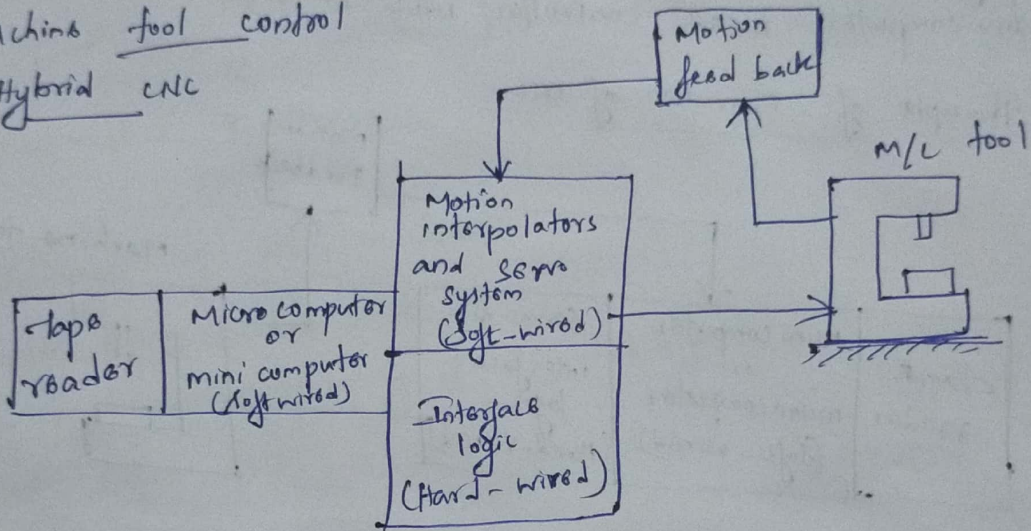 achine tool control
Hybrid CNC
Motion
feed back
M/C tool
Motion
interpolators
and servo
system
(Soft-wired)
Tape
reader
Micro computer
or
mini computer
(Soft wired)
Interface
logic
(Hard-wired)